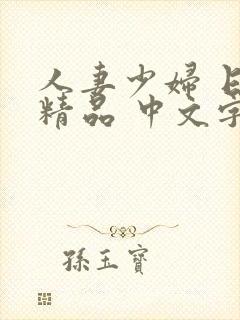 人妻少婦
精品 中文字
孫玉寶